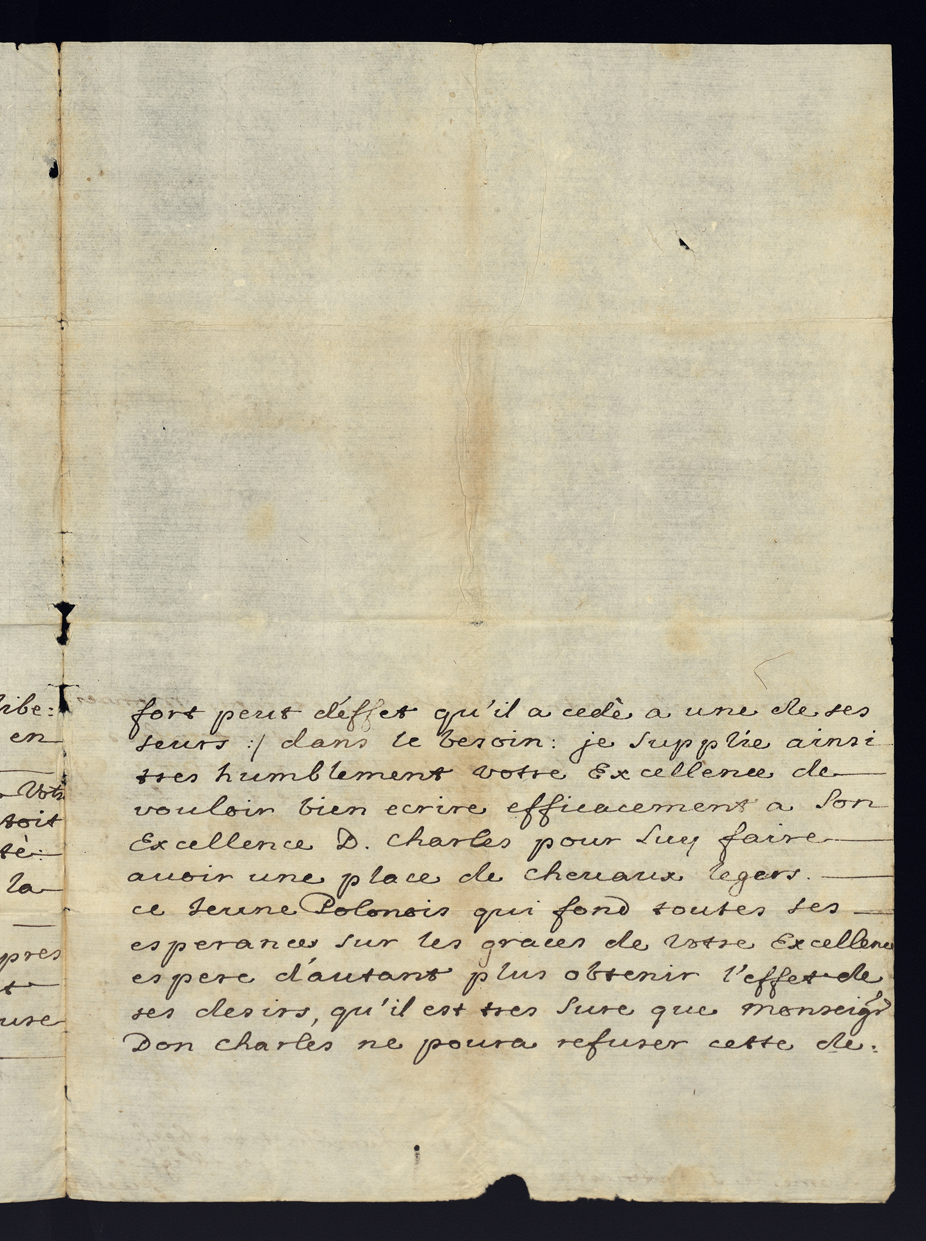 fort peut d'effet qu'il a cedè a une de ses
seurs :/ dans le besoin: je supplie ainsi
tres humblement votre Excellence de
vouloir bien ecrire efficacement a Son
Excellence D. Charles pour Luy faire
avoir une place de chevaux legers.
ce Jeune Polonois qui fond toutes ses
esperances sur les graces de Votre Excellence
espere d'autant plus obtenir l'effet de
ses desirs, qu'il est tres sure que Monseigr
Don Charles ne poura refuser cette de:
libe:
en
Votr
soit
té:
la
pres
use